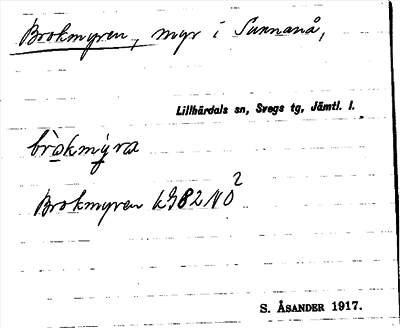 Brokmyren, myr i Sunnanå,
Lillhärdals sn, Svegs tg, Jämtl. l.
bròkmýra
Brokmyren kG82NO²
S. ÅSANDER 1917.